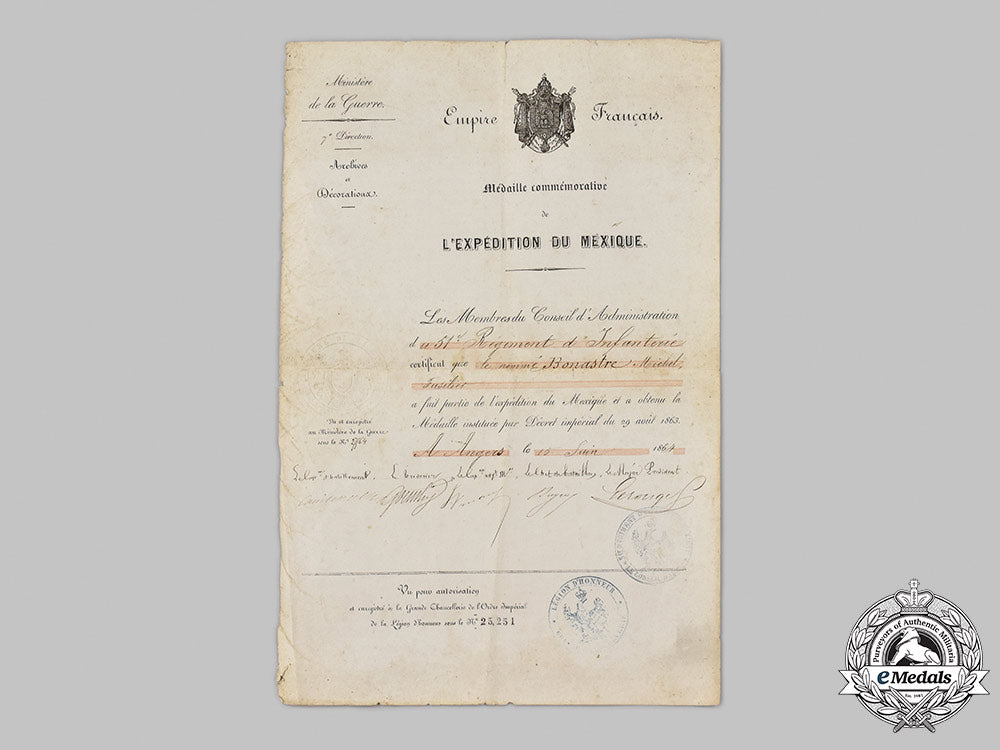 Ministère
de la Guerre.
7e Direction.
Archives
et
Décorations.
Empire Français.
Médaille commémorative
de
L'EXPÉDITION DU MEXIQUE.
Les Membres du Conseil d'Administration
d u 51e Régiment d'Infanterie
certifient que le nommé Bonastre, Michel,
Fusilier
a fait partie de l'expédition du Mexique et a obtenu la
Médaille instituée par Décret impérial du 29 août 1863.
A Angers le 10 Juin 1864
Vu et enregistré
au Ministère de la Guerre
sous le No
Le Cap. d'habillement Le Trésorier le Chef de bataillon, le Major Président
Vu pour autorisation
et enregistré à la Grande Chancellerie de l'Ordre Impérial
de la Légion d'honneur sous le No 25,251
LÉGION D'HONNEUR
Purveyors of Authentic Militaria
eMedals